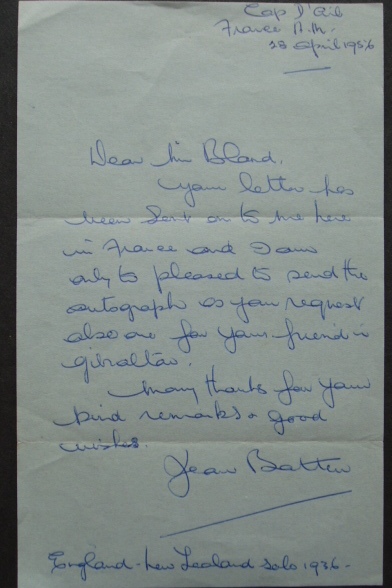 Cap D'Ail
France A.M.
28 April 1956
Dear Mr Bland,
Your letter has
been sent on to me here
in France and I am
only to pleased to send the
autograph as you request
also one for your friend in
Gibraltar.
Many thanks for your
kind remarks & good
wishes.
Jean Batten
England - New Zealand solo 1936.